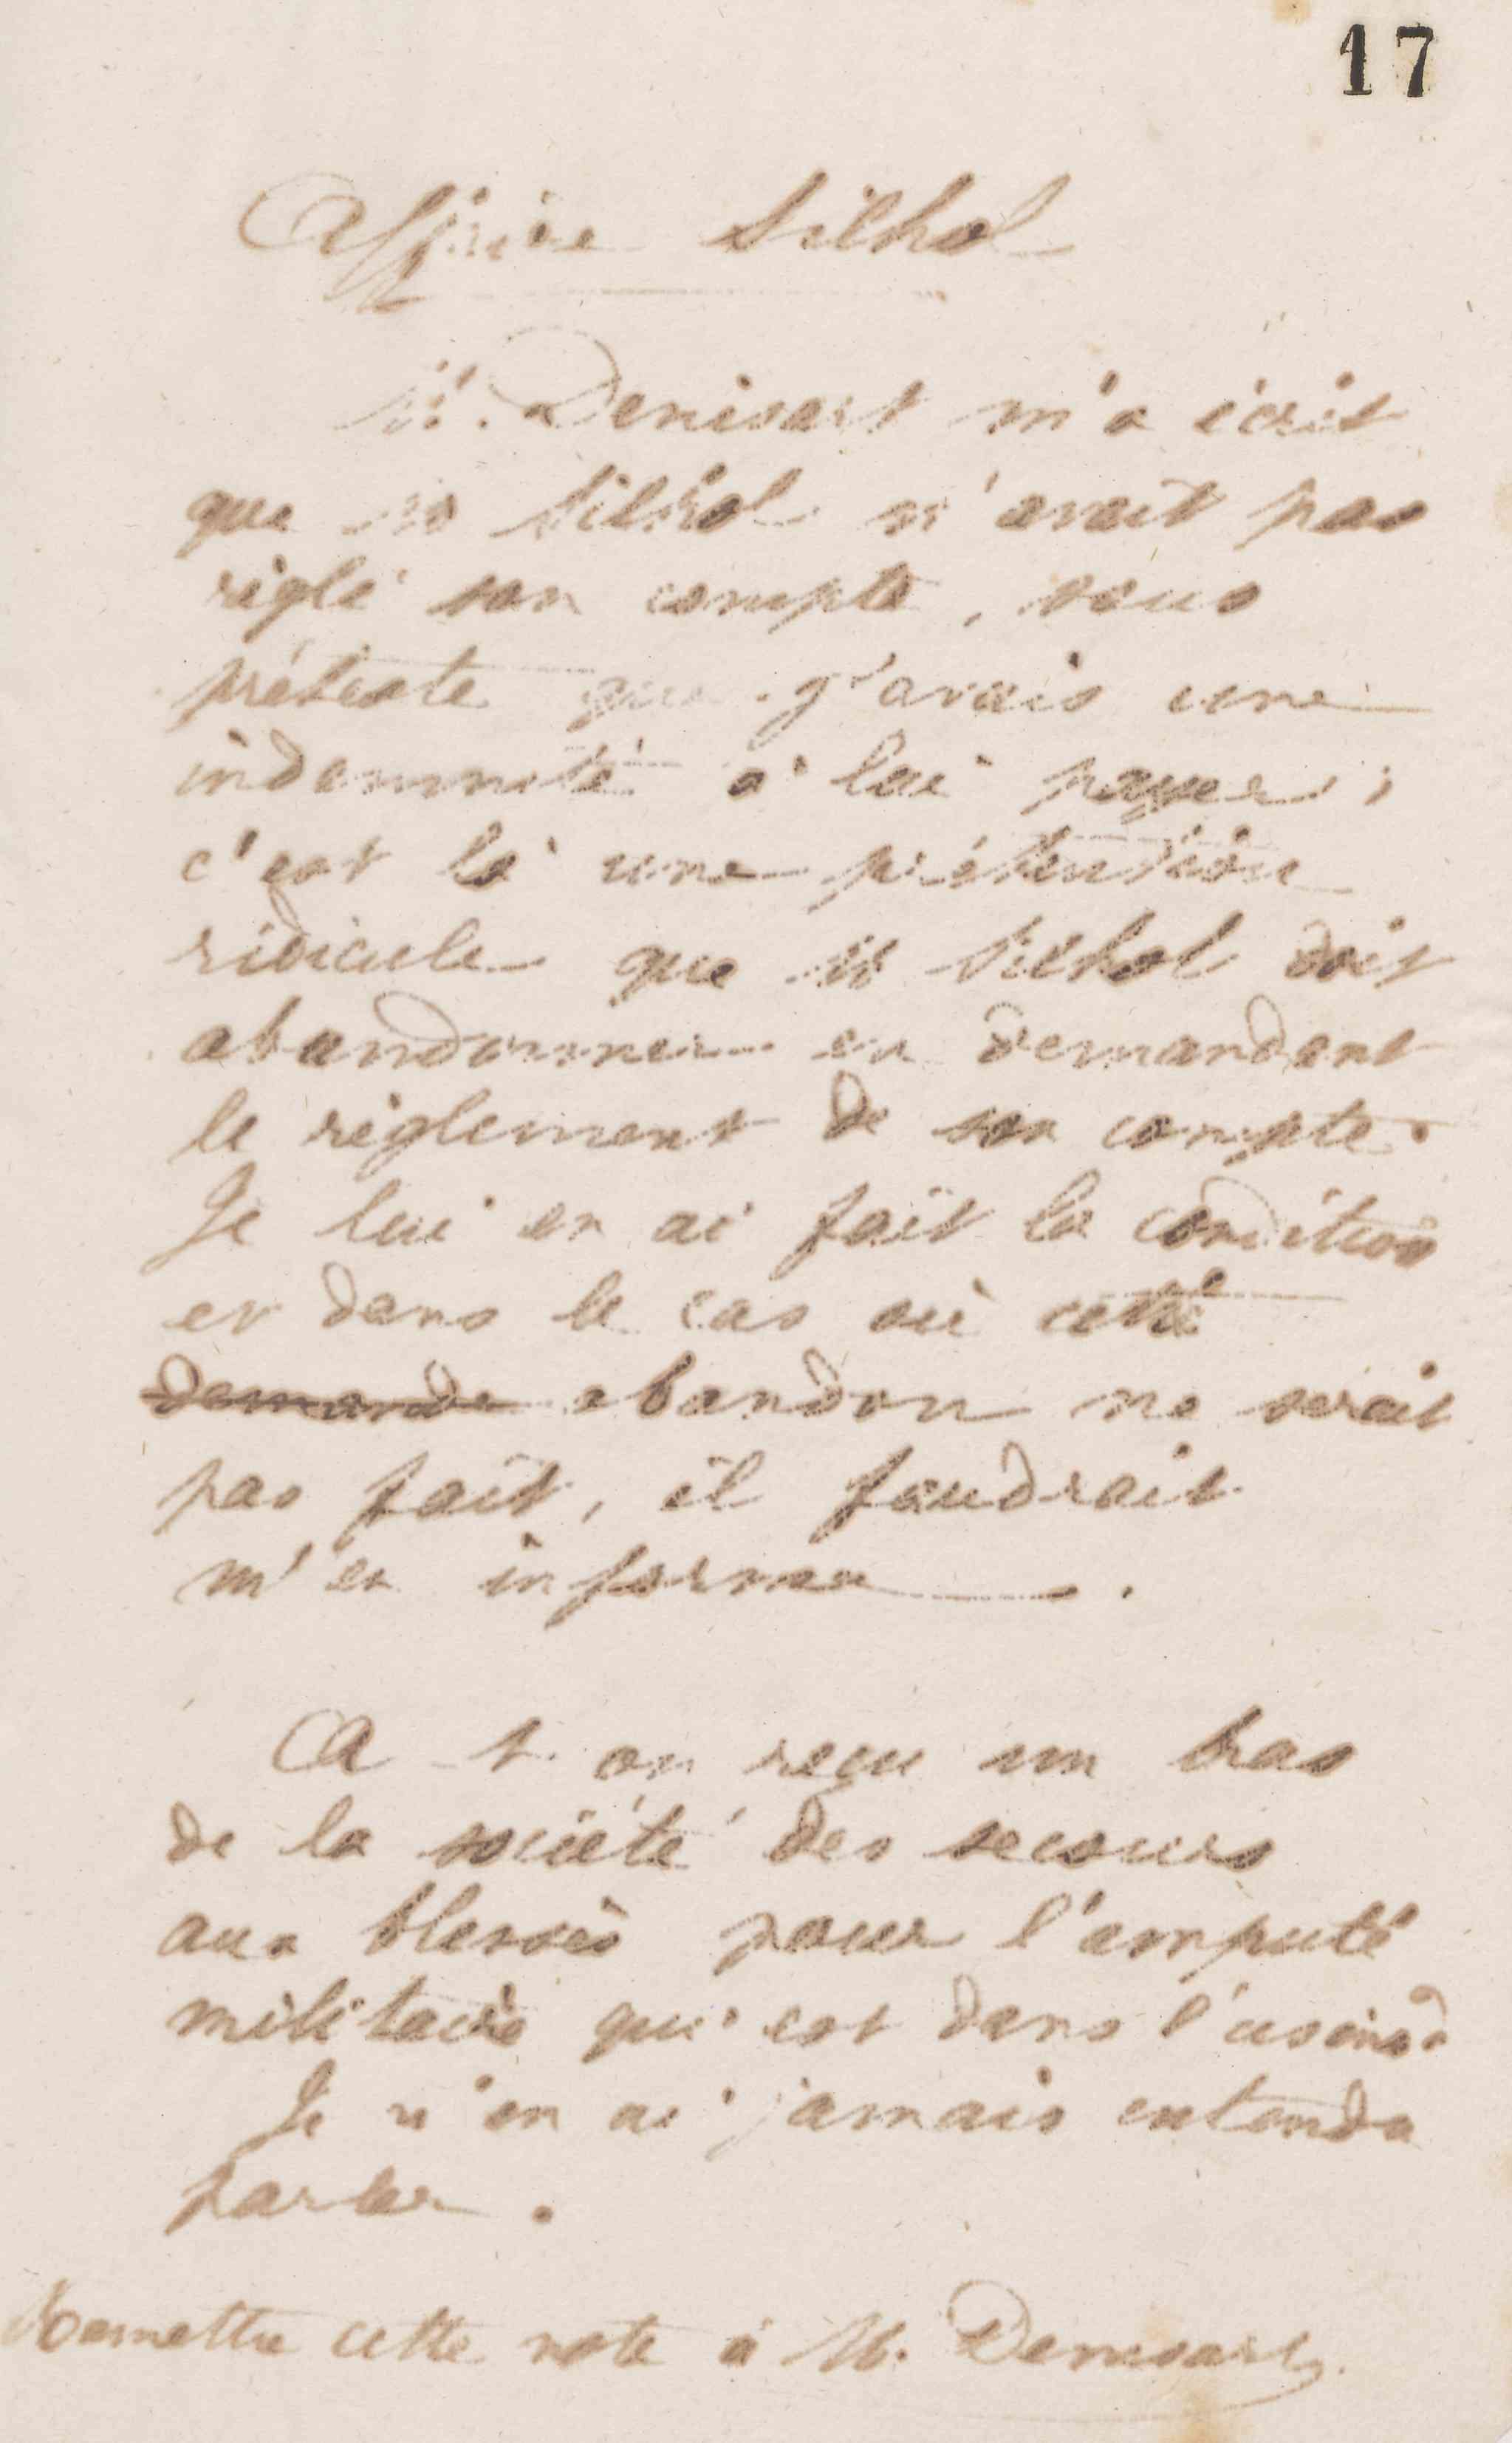 17
Affaire Silhol
M. Denisart m'a écrit
que M Silhol n'avait pas
règlé son compte, sous
prétexte que j'avais une
indemnité à lui payer ;
c'est là une prétention
ridicule que M Silhol doit
abandonner en demandant
le règlement de son compte.
Je lui en ai fait la condition
et dans le cas où cette
demande abandon ne serait
pas fait, il faudrait
m'en informer.
A t. on reçu un bras
de la société des secours
aux blessés pour l'amputé
militaire qui est dans l'usine ?
Je n'en ai jamais entendu
parler.
Remettre cette note à M. Denisart.